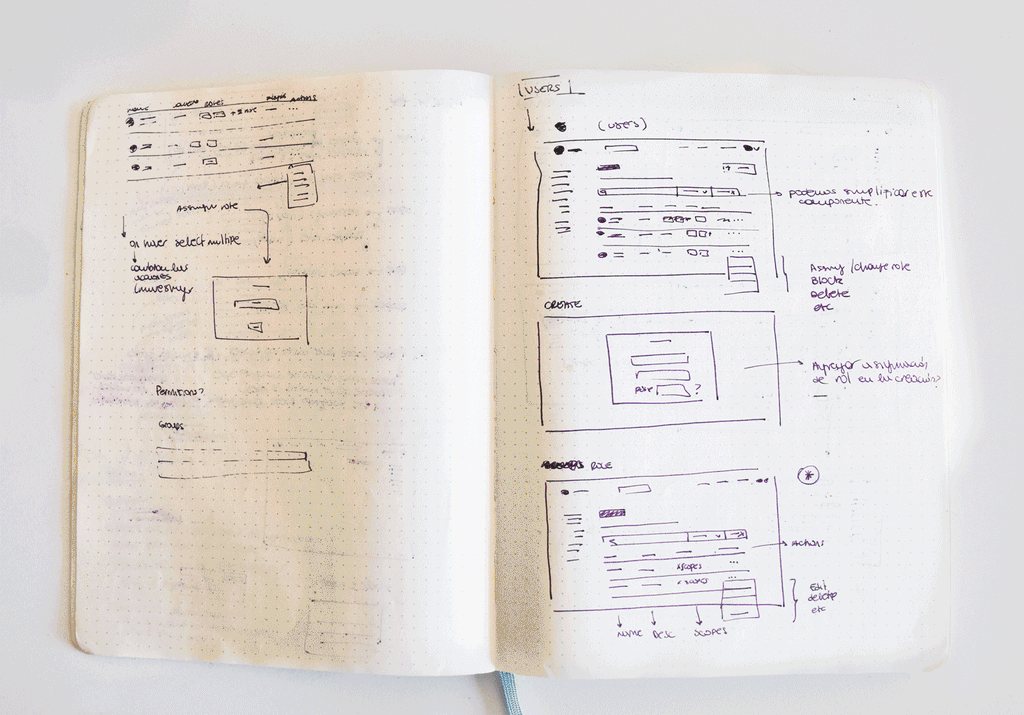 name
ROLES
actions
Assign role
on hover select multiple
Permitions?
Groups
USERS
(USERS)
podemos simplificar este
componente.
Assign / change role
Block
Delete
etc
CREATE
Role
?
Agregar asignación
de rol en la creación?
ROLE
*
Actions
scopes
scopes
Edit
delete
etc
NAME DESC SCOPES